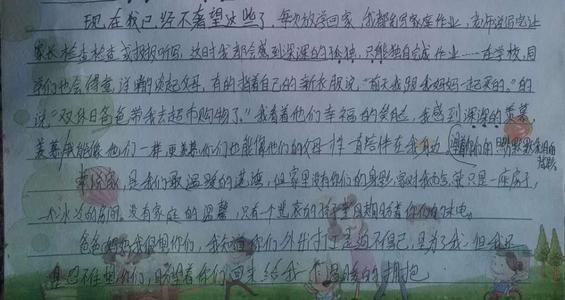 现在我已经不奢望这些了,每次放学回家,我都会写家庭作业,老师说写完让
家长检查检查或报报听写,这时我都会感到深深的孤独,只能独自完成作业……在学校,同
学们也会得意,洋洋的谈起父母,有的指着自己的新衣服说,"前天我跟我妈妈一起买的。"的
说"双休日爸爸带我去超市购物了。"我看着他们幸福的笑脸,我感到深深的羡慕,
羡慕能像他们一样,更羡慕你们也能像他们的父母一样一直陪伴在我身边
来说家,是我们最温暖的港湾,但家里没有你们的身影,家对我而言,就只是一座房子,
一个冰冷的房间,没有家庭的温馨,只有一个孤寂的孩子望眼期盼着你们的来电。
爸爸妈妈我很想你们,我知道你们外出打工是迫不得已,是为了我,但我还
是忍不住想你们,盼望着你们回来给我一个温暖的拥抱